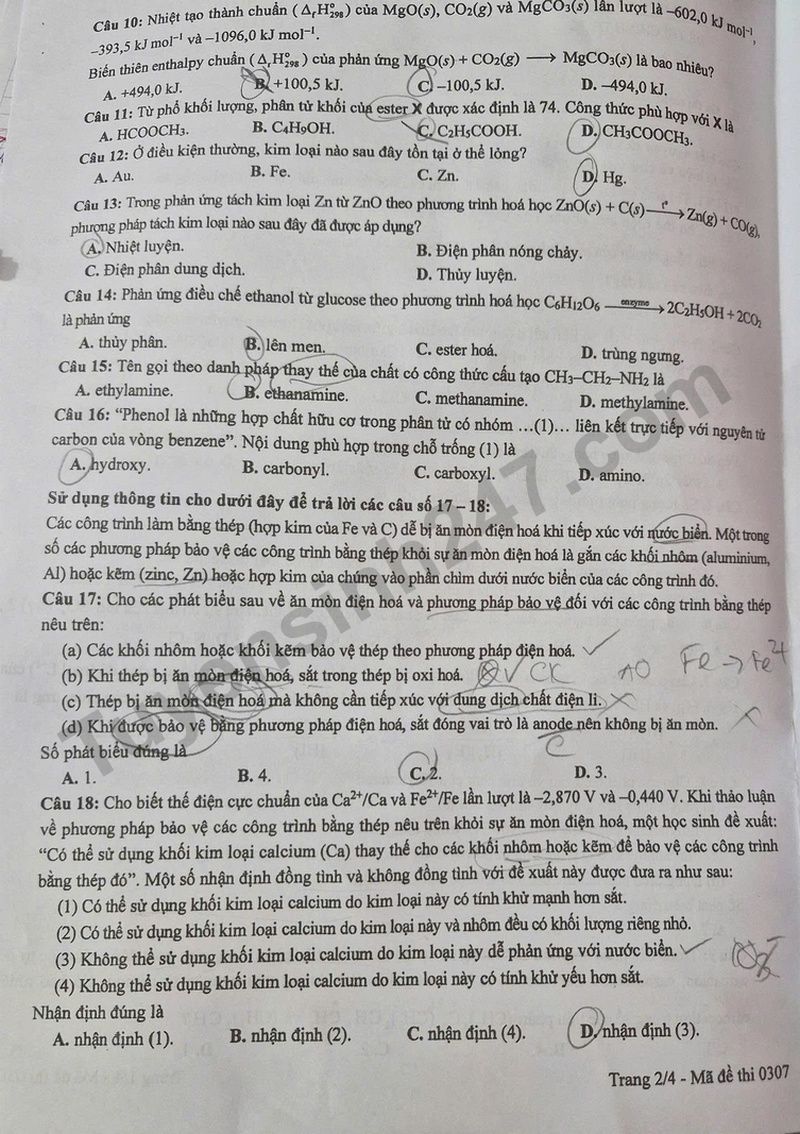 Câu 10: Nhiệt tạo thành chuẩn (ΔfH°298) của MgO(s), CO2(g) và MgCO3(s) lần lượt là –602,0 kJ mol⁻¹,
–393,5 kJ mol⁻¹ và –1096,0 kJ mol⁻¹.
Biến thiên enthalpy chuẩn (ΔrH°298) của phản ứng MgO(s) + CO2(g) ⟶ MgCO3(s) là bao nhiêu?
A. +494,0 kJ. B. +100,5 kJ. C. –100,5 kJ. D. –494,0 kJ.
Câu 11: Từ phổ khối lượng, phân tử khối của ester X được xác định là 74. Công thức phù hợp với X là
A. HCOOCH3. B. C4H9OH. C. C2H5COOH. D. CH3COOCH3.
Câu 12: Ở điều kiện thường, kim loại nào sau đây tồn tại ở thể lỏng?
A. Au. B. Fe. C. Zn. D. Hg.
Câu 13: Trong phản ứng tách kim loại Zn từ ZnO theo phương trình hoá học ZnO(s) + C(s) —t°→ Zn(g) + CO(g),
phương pháp tách kim loại nào sau đây đã được áp dụng?
A. Nhiệt luyện. B. Điện phân nóng chảy.
C. Điện phân dung dịch. D. Thủy luyện.
Câu 14: Phản ứng điều chế ethanol từ glucose theo phương trình hoá học C6H12O6 —enzyme→ 2C2H5OH + 2CO2
là phản ứng
A. thủy phân. B. lên men. C. ester hoá. D. trùng ngưng.
Câu 15: Tên gọi theo danh pháp thay thế của chất có công thức cấu tạo CH3–CH2–NH2 là
A. ethylamine. B. ethanamine. C. methanamine. D. methylamine.
Câu 16: “Phenol là những hợp chất hữu cơ trong phân tử có nhóm …(1)… liên kết trực tiếp với nguyên tử
carbon của vòng benzene”. Nội dung phù hợp trong chỗ trống (1) là
A. hydroxy. B. carbonyl. C. carboxyl. D. amino.
Sử dụng thông tin cho dưới đây để trả lời các câu số 17 – 18:
Các công trình làm bằng thép (hợp kim của Fe và C) dễ bị ăn mòn điện hoá khi tiếp xúc với nước biển. Một trong
số các phương pháp bảo vệ các công trình bằng thép khỏi sự ăn mòn điện hoá là gắn các khối nhôm (aluminium,
Al) hoặc kẽm (zinc, Zn) hoặc hợp kim của chúng vào phần chìm dưới nước biển của các công trình đó.
Câu 17: Cho các phát biểu sau về ăn mòn điện hoá và phương pháp bảo vệ đối với các công trình bằng thép
nêu trên:
(a) Các khối nhôm hoặc khối kẽm bảo vệ thép theo phương pháp điện hoá.
(b) Khi thép bị ăn mòn điện hoá, sắt trong thép bị oxi hoá. CK AO Fe → Fe
(c) Thép bị ăn mòn điện hoá mà không cần tiếp xúc với dung dịch chất điện li.
(d) Khi được bảo vệ bằng phương pháp điện hoá, sắt đóng vai trò là anode nên không bị ăn mòn.
C
Số phát biểu đúng là
A. 1. B. 4. C. 2. D. 3.
Câu 18: Cho biết thế điện cực chuẩn của Ca²⁺/Ca và Fe²⁺/Fe lần lượt là –2,870 V và –0,440 V. Khi thảo luận
về phương pháp bảo vệ các công trình bằng thép nêu trên khỏi sự ăn mòn điện hoá, một học sinh đề xuất:
“Có thể sử dụng khối kim loại calcium (Ca) thay thế cho các khối nhôm hoặc kẽm để bảo vệ các công trình
bằng thép đó”. Một số nhận định đồng tình và không đồng tình với đề xuất này được đưa ra như sau:
(1) Có thể sử dụng khối kim loại calcium do kim loại này có tính khử mạnh hơn sắt.
(2) Có thể sử dụng khối kim loại calcium do kim loại này và nhôm đều có khối lượng riêng nhỏ.
(3) Không thể sử dụng khối kim loại calcium do kim loại này dễ phản ứng với nước biển.
(4) Không thể sử dụng khối kim loại calcium do kim loại này có tính khử yếu hơn sắt.
Nhận định đúng là
A. nhận định (1). B. nhận định (2). C. nhận định (4). D. nhận định (3).
Trang 2/4 - Mã đề thi 0307
Tuyensinh247.com